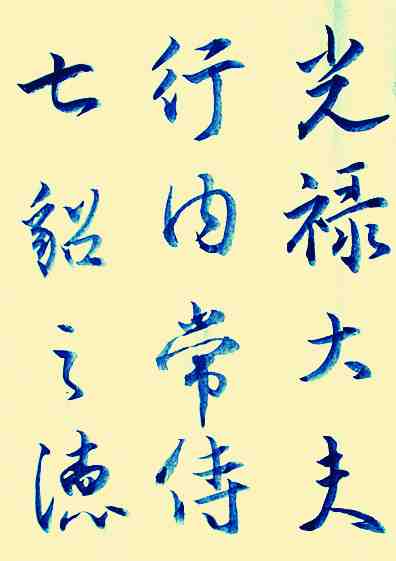 光禄大夫
行内常侍
七貂之德